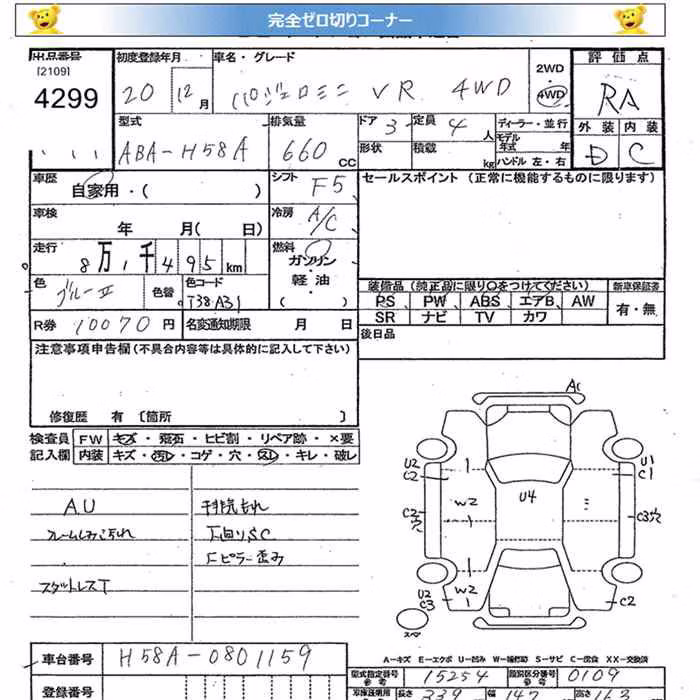 完全ゼロ切りコーナー
出品番号
[2109]
4299
初度登録年月
20 12月
車名・グレード
パジェロミニ VR 4WD
2WD
・
4WD
評価点
RA
外装 内装
D C
型式
ABA-H58A
排気量
660 cc
ドア 3
定員 4 人
形状
積載 kg
ディーラー・並行
モデル年式 年
ハンドル 左・右
車歴
自家用・( )
シフト F5
セールスポイント (正常に機能するものに限ります)
車検
年 月( 日)
冷房 A/C
走行
8万1千495km
燃料
ガソリン
・
軽油
色
ブルーII
色替
色コード
T38A31
装備品 (純正品に限り○をつけてください)
PS PW ABS エアB AW
SR ナビ TV カワ
新車保証書
有・無
R券 10070円
名変通知期限 月 日
後日品
注意事項申告欄(不具合内容等は具体的に記入して下さい)
修復歴 有 [箇所 ]
検査員 FW キズ・飛石・ヒビ割・リペア跡・×要
記入欄 内装 キズ・汚レ・コゲ・穴・スレ・キレ・破レ
AU
スタットレスT
下回りSC
Fピラー歪み
A1
U2
C2
C2
穴
W2
U4
U1
C1
C3穴
W2
U2
C3
C2
スペア
A-キズ E-エクボ U-凹み W-補修跡 S-サビ C-腐食 XX-交換済
車台番号 H58A-0801159
型式指定番号
参考
15254
類別区分番号
参考
0109
登録番号
長さ 339 幅 147 高さ 163